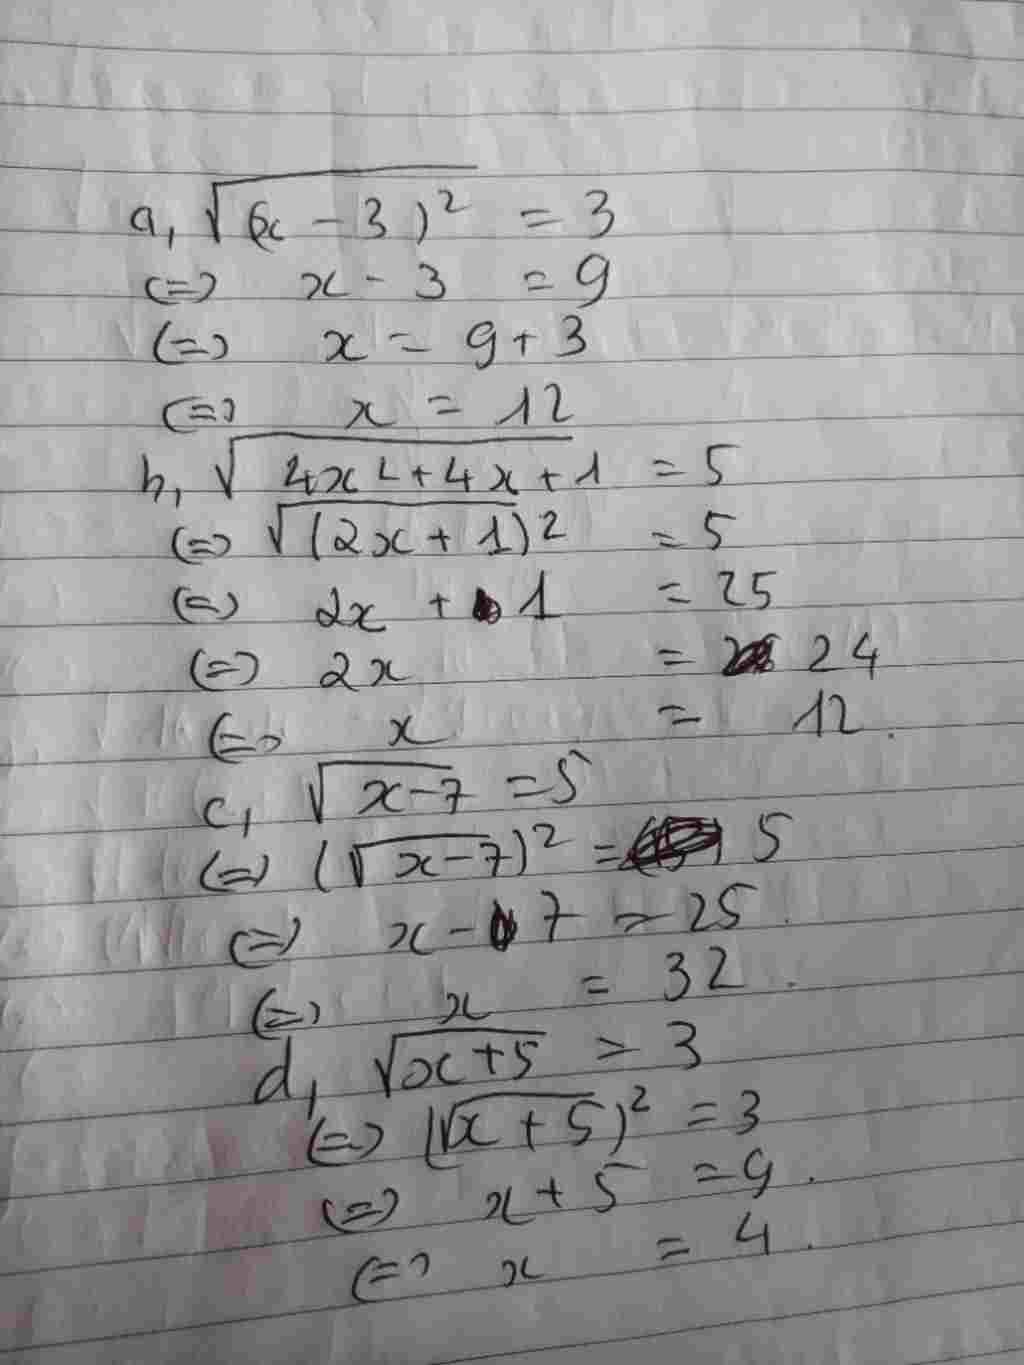 a, √(x - 3)² = 3
(=) x - 3 = 9
(=) x = 9 + 3
(=) x = 12
b, √4x² + 4x + 1 = 5
(=) √(2x + 1)² = 5
(=) 2x + 1 = 25
(=) 2x = 24
(=) x = 12.
c, √x - 7 = 5
(=) (√x - 7)² = 5
(=) x - 7 = 25.
(=) x = 32.
d, √x + 5 = 3
(=) (√x + 5)² = 3
(=) x + 5 = 9.
(=) x = 4.